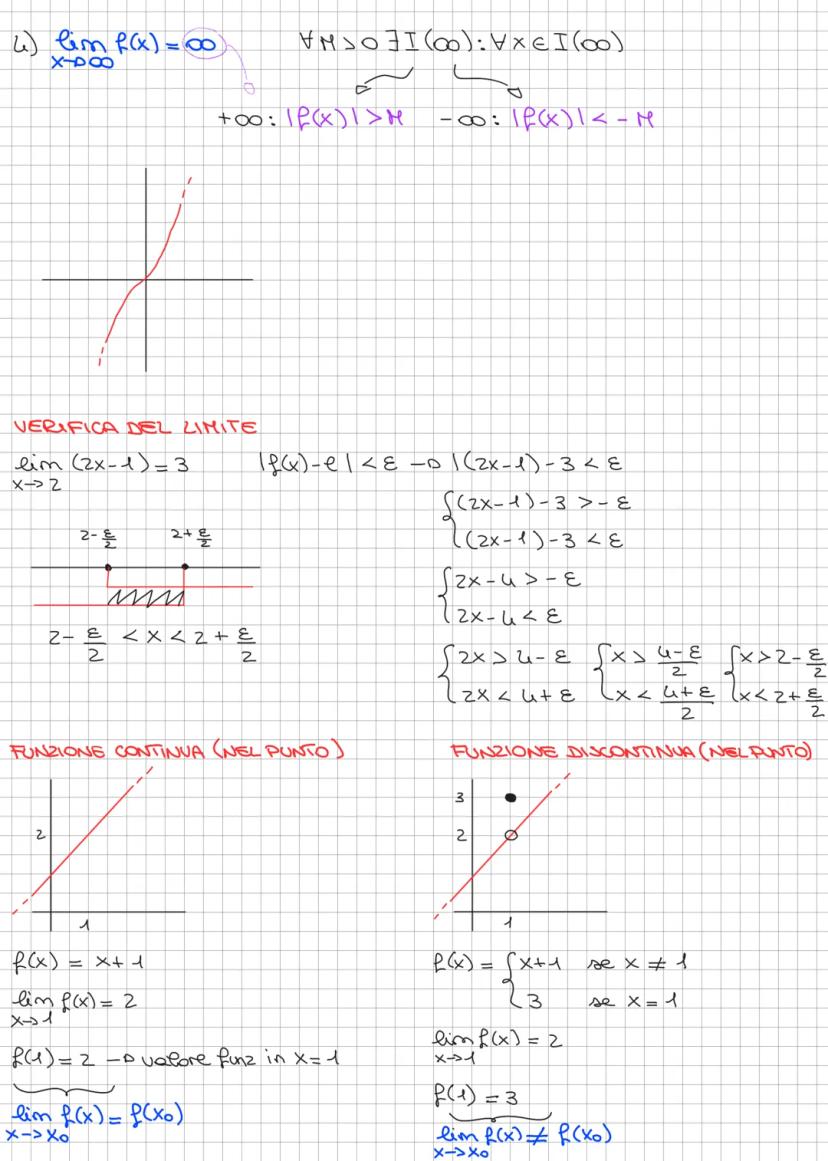 4) lim f(x) = ∞ ∀M>0 ∃I(∞): ∀x∈I(∞)
x→∞
+∞: |f(x)|>M -∞: |f(x)|<-M
VERIFICA DEL LIMITE
lim (2x-1) = 3 |f(x)-ℓ|<ε → |(2x-1)-3<ε
x→2
{(2x-1)-3>-ε
(2x-1)-3<ε
2-ε/2 2+ε/2
{2x-4>-ε
2x-4<ε
2-ε/2 <x<2+ε/2
{2x>4-ε {x>(4-ε)/2 {x>2-ε/2
2x<4+ε x<(4+ε)/2 x<2+ε/2
FUNZIONE CONTINUA (NEL PUNTO)
2
1
f(x) = x+1
lim f(x) = 2
x→1
f(1) = 2 → valore funz in x=1
lim f(x) = f(x₀)
x→x₀
FUNZIONE DISCONTINUA (NEL PUNTO)
3
2
1
f(x) = {x+1 se x ≠ 1
3 se x = 1
lim f(x) = 2
x→1
f(1) = 3
lim f(x) ≠ f(x₀)
x→x₀